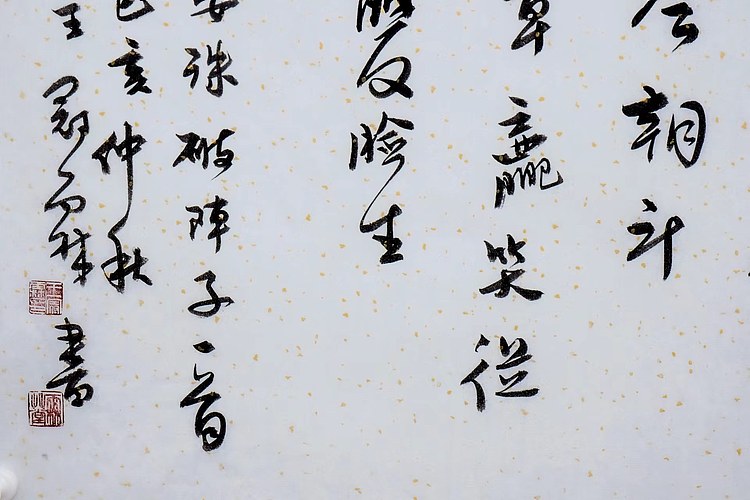 今朝斗
草贏笑從
雙臉生
晏殊破陣子一首
己亥仲秋
王
書